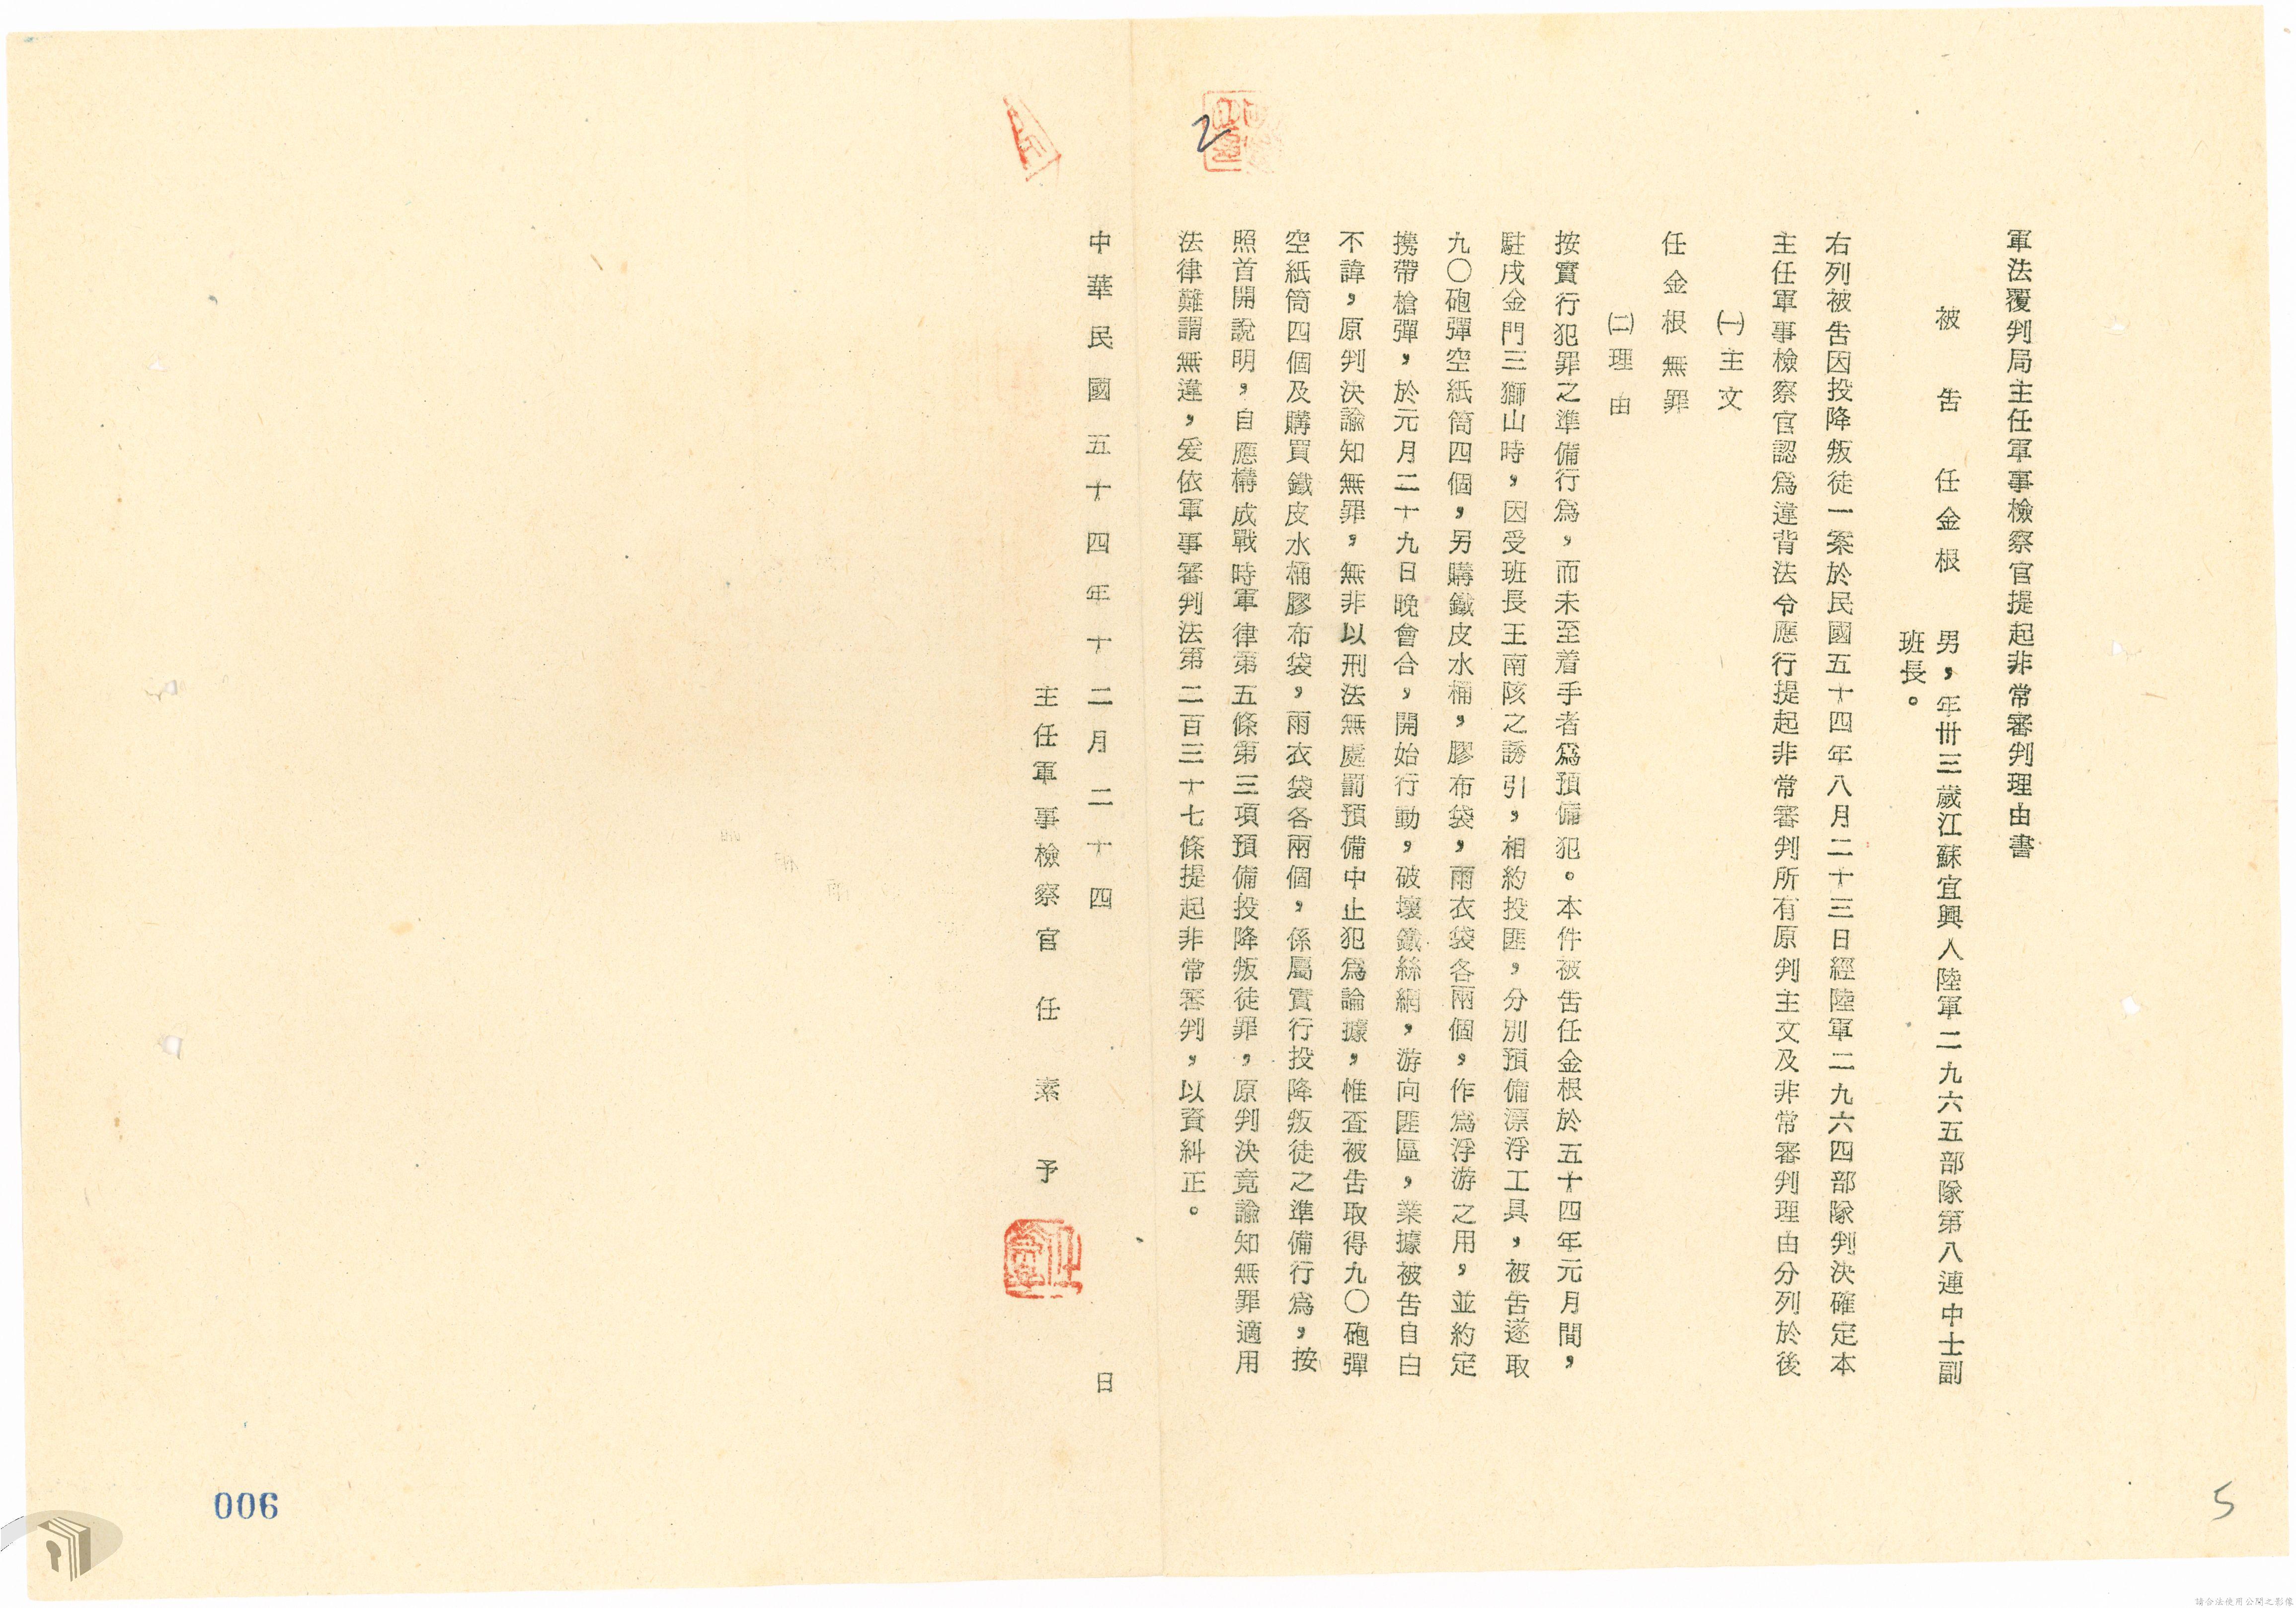 軍法覆判局主任軍事檢察官提起非常審判理由書
被告　任金根　男，年卅三歲江蘇宜興人陸軍二九六五部隊第八連中士副
班長。
右列被告因投降叛徒一案於民國五十四年八月二十三日經陸軍二九六四部隊判決確定本
主任軍事檢察官認為違背法令應行提起非常審判所有原判主文及非常審判理由分列於後
㈠主文
任金根無罪
㈡理由
按實行犯罪之準備行為，而未至着手者為預備犯。本件被告任金根於五十四年元月間，
駐戍金門三獅山時，因受班長王南陔之誘引，相約投匪，分別預備漂浮工具，被告遂取
九〇砲彈空紙筒四個，另購鐵皮水桶，膠布袋，雨衣袋各兩個，作為浮游之用，並約定
攜帶槍彈，於元月二十九日晚會合，開始行動，破壞鐵絲網，游向匪區，業據被告自白
不諱，原判決諭知無罪，無非以刑法無處罰預備中止犯為論據，惟查被告取得九〇砲彈
空紙筒四個及購買鐵皮水桶膠布袋，雨衣袋各兩個，係屬實行投降叛徒之準備行為，按
照首開說明，自應構成戰時軍律第五條第三項預備投降叛徒罪，原判決竟諭知無罪適用
法律難謂無違，爰依軍事審判法第二百三十七條提起非常審判，以資糾正。
中華民國五十四年十二月二十四日
主任軍事檢察官任素予
2
5
006
請合法使用公開之影像